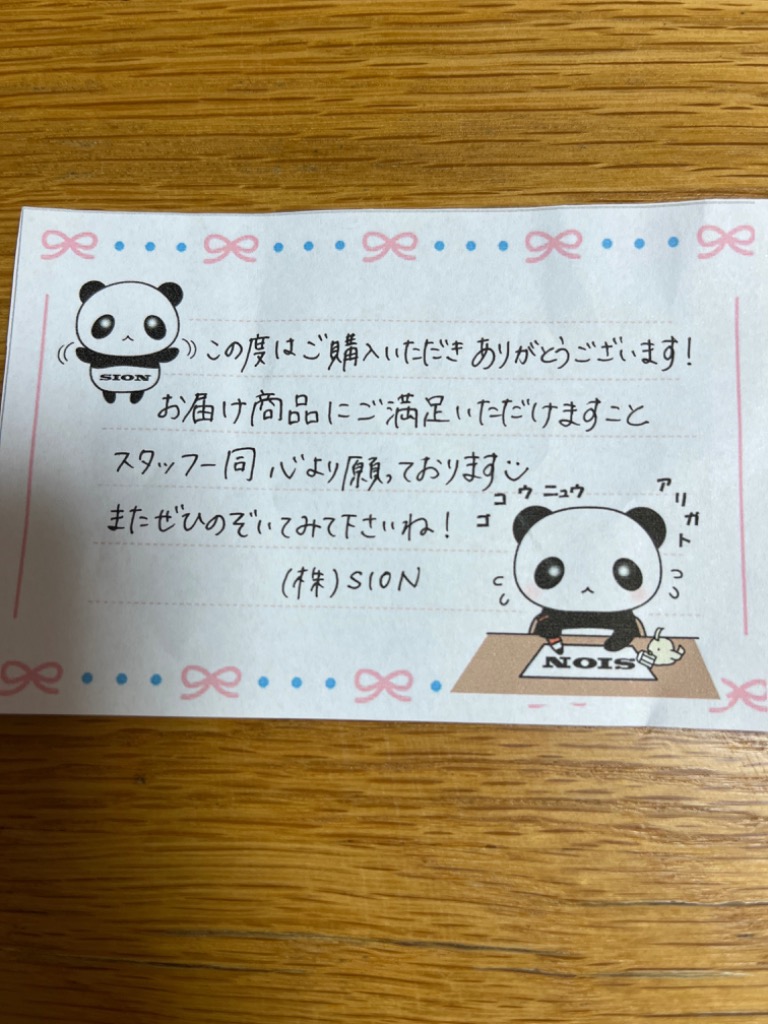 SION
この度はご購入いただき ありがとうございます!
お届け商品にご満足いただけますこと
スタッフ一同 心より願っております
またぜひのぞいてみて下さいね!
(株)SION
ゴコウニュウ
アリガト
SION